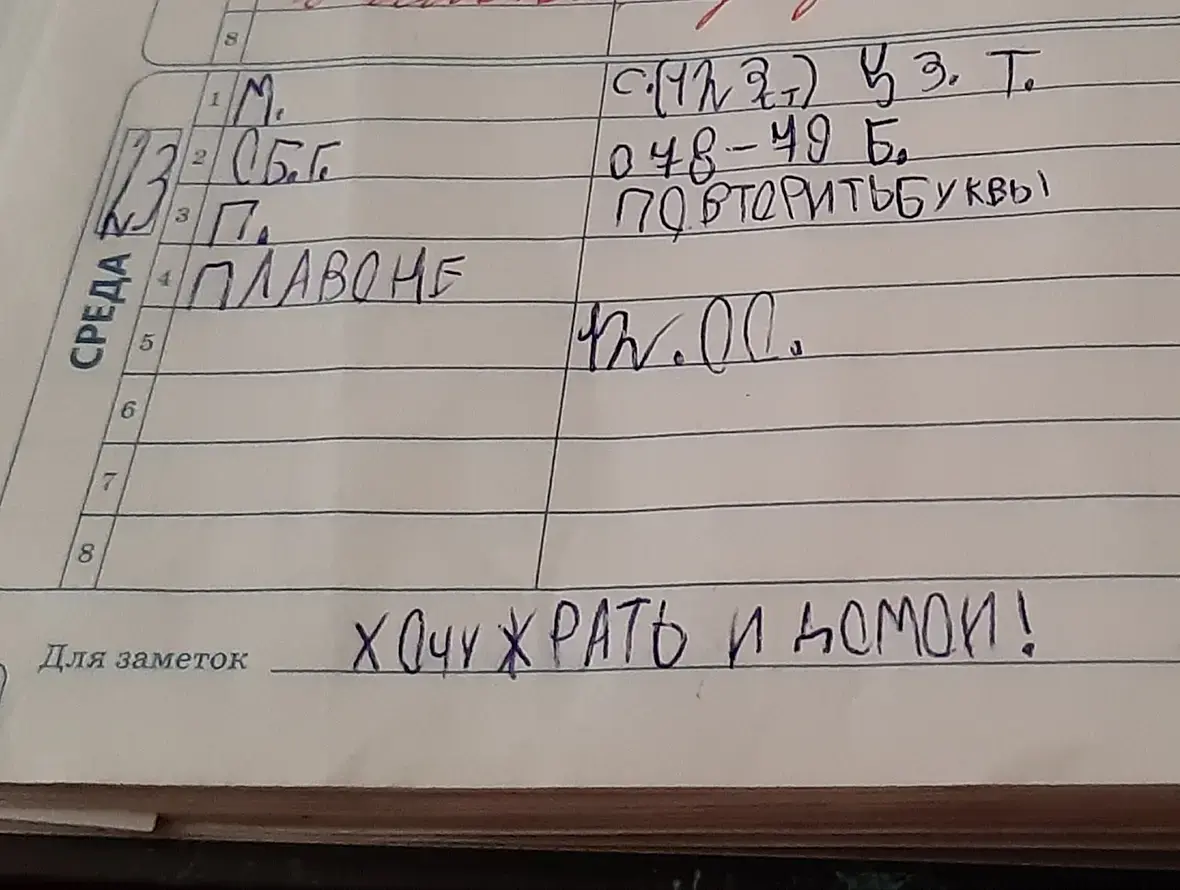 8
СРЕДА 23
1 М. С.(12 3т) Ц З. Т.
2 СБ.Г. 048-49 Б.
3 П. ПОВТОРИТЬБУКВЫ
4 ПЛАВОНЕ
5 12.00.
6
7
8
Для заметок ХОЧУ ЖРАТЬ И ДОМОЙ!